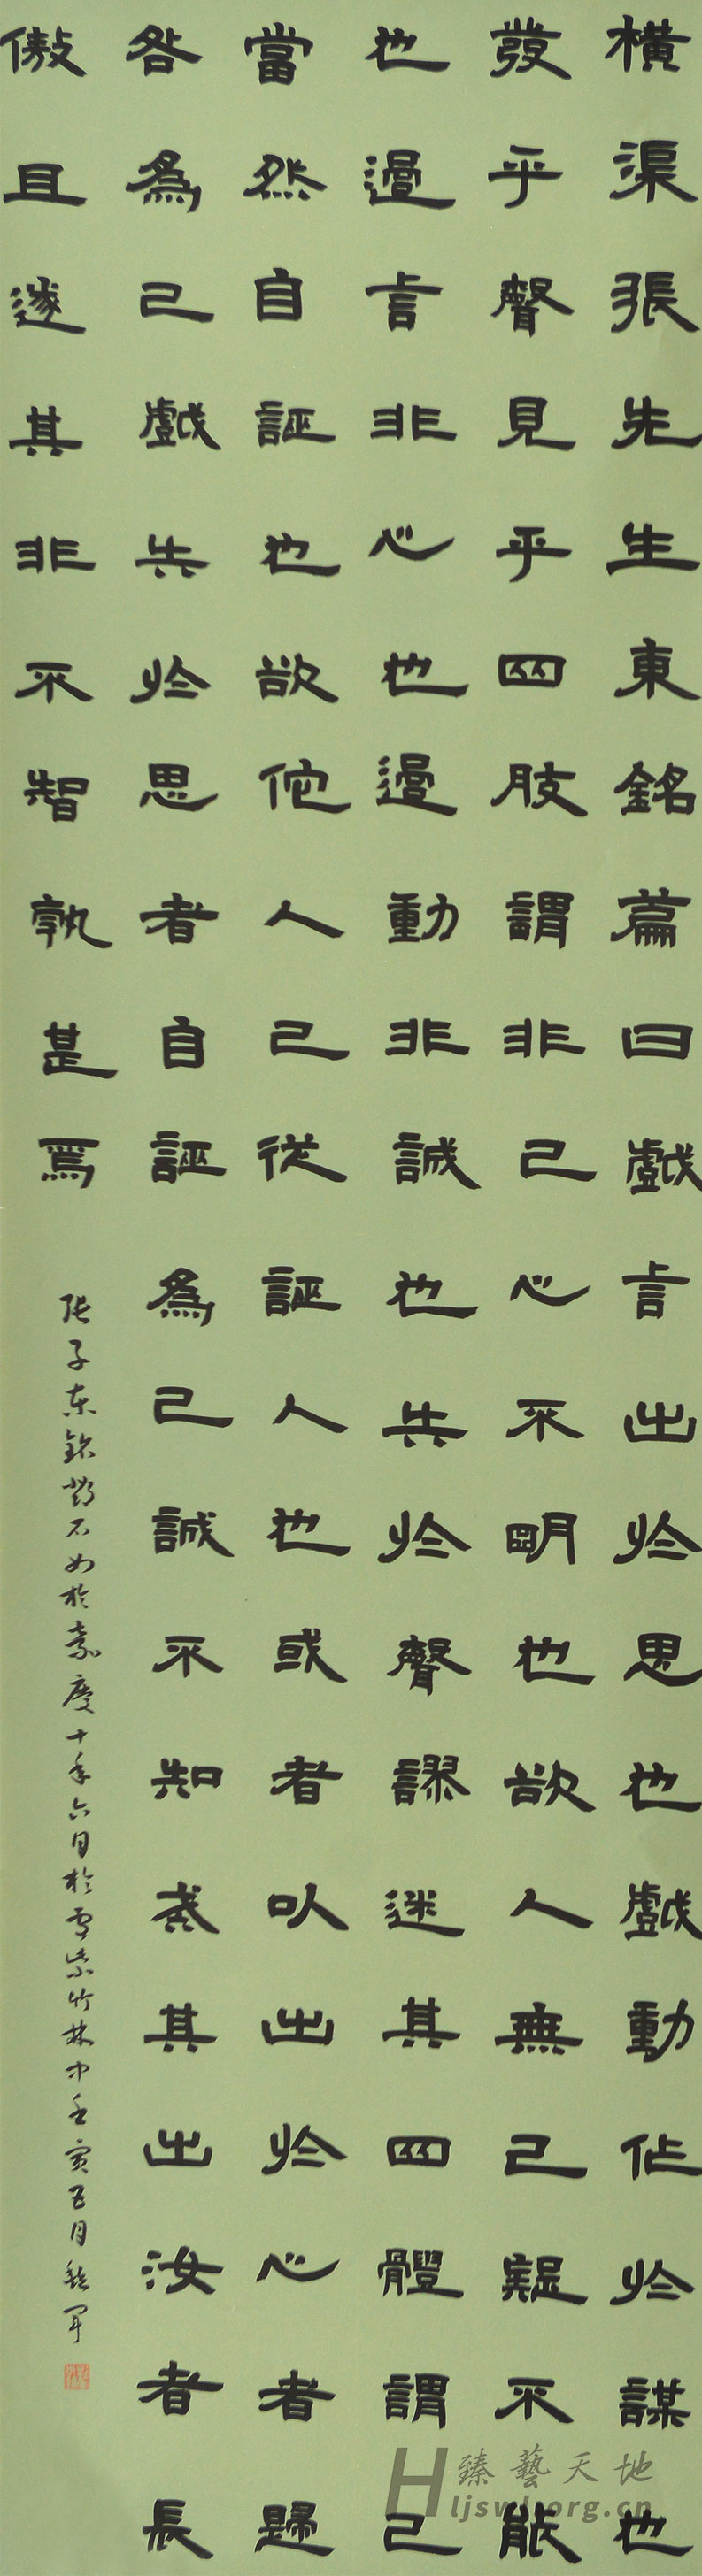 橫渠張先生東銘篇曰戲言出於思也戲動作於謀也
發乎聲見乎四肢謂非己心不明也欲人無己疑不能
也過言非心也過動非誠也失於聲謬迷其四體謂己
當然自誣也欲佗人己從誣人也或者以出於心者歸
咎為己戲失於思者自誣為己誠不知戒其出汝者長
傲且遂其非不智孰甚焉
張子東銘鄧石如於嘉慶十年六月於雪紫竹林中壬寅五月
臻藝天地
ljswl.org.cn